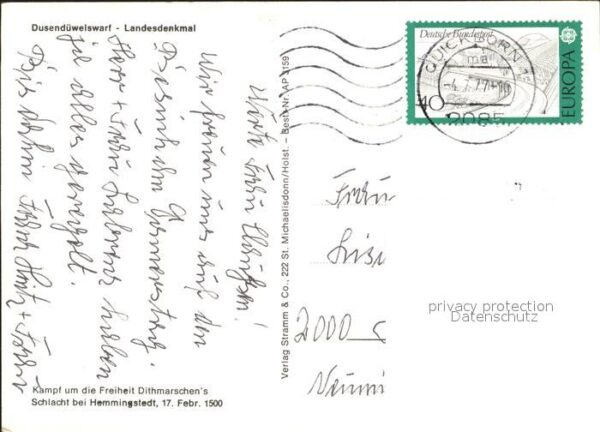 Dusendüwelswarf - Landesdenkmal
Werte Frau
Wir freuen uns auf den
Besuch am Donnerstag.
Herr + Frau haben
ja alles geregelt.
Bis dahin Frau + Frau
Kampf um die Freiheit Dithmarschen's
Schlacht bei Hemmingstedt, 17. Febr. 1500
Verlag Stramm & Co., 222 St. Michaelisdonn/Holst. – Best. Nr. AP 3159
Deutsche Bundespost
40
EUROPA
QUICKBORN 1
2085
Frau
Lisi
2000
privacy protection
Datenschutz